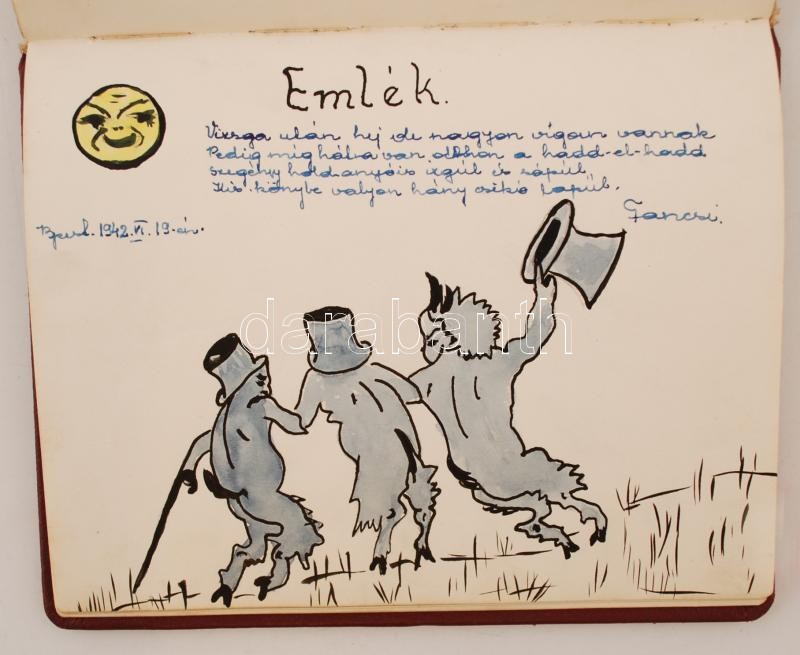 Emlék.
Vizsga után hej de nagyon vígan vannak
Pedig még hátra van otthon a hadd-el-hadd
Szegény hold anyó is végül és sápul
Kis könybe valyon hány csikó lapúl.
Fancsi.
1942. VI. 19-én.
darabanth